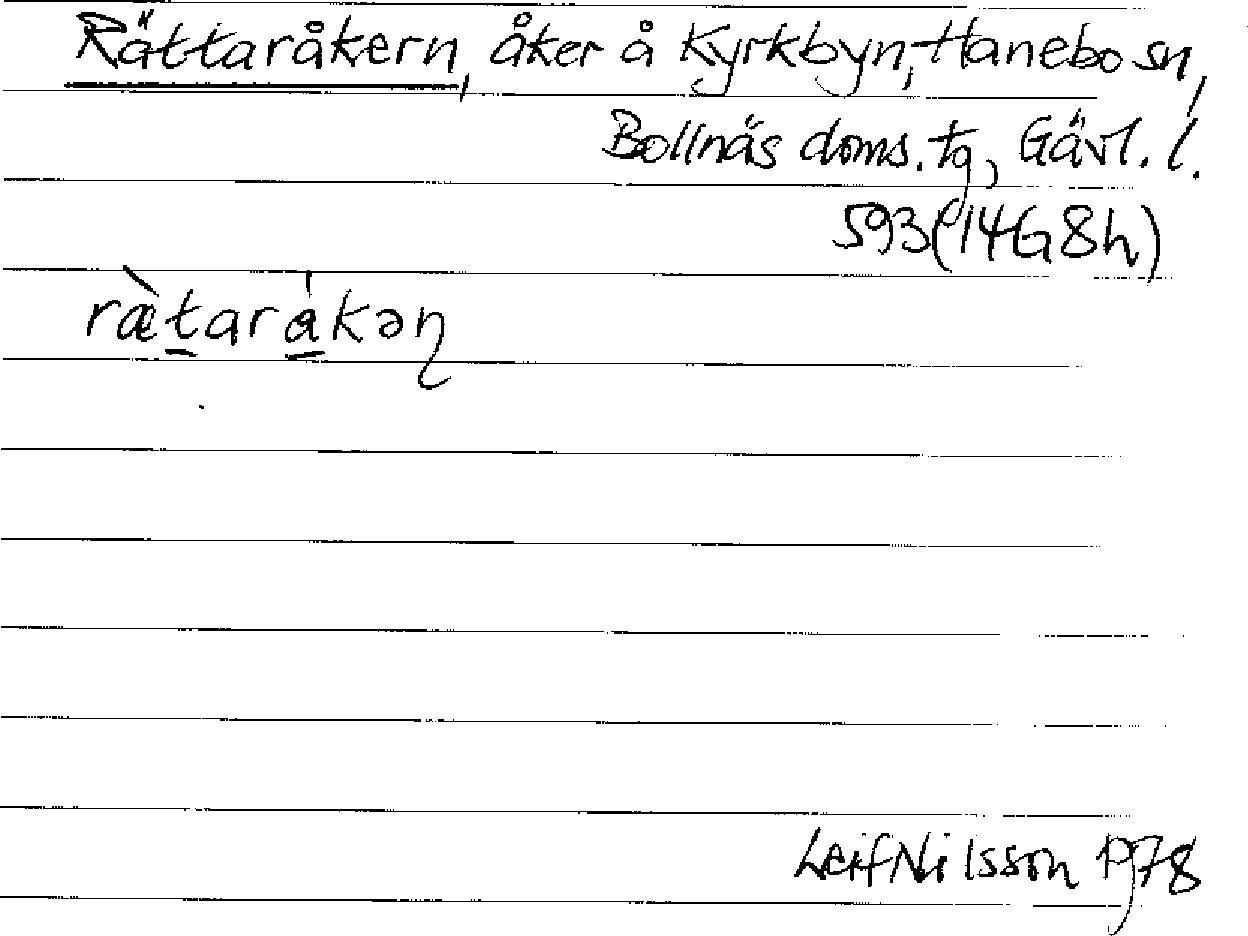 Rättaråkern, åker å Kyrkbyn, Hanebo sn,
Bollnäs doms. tg, Gävl. l.
593 (14G8h)
ræ̀t̲ará̲kəɳ
Leif Nilsson 1978